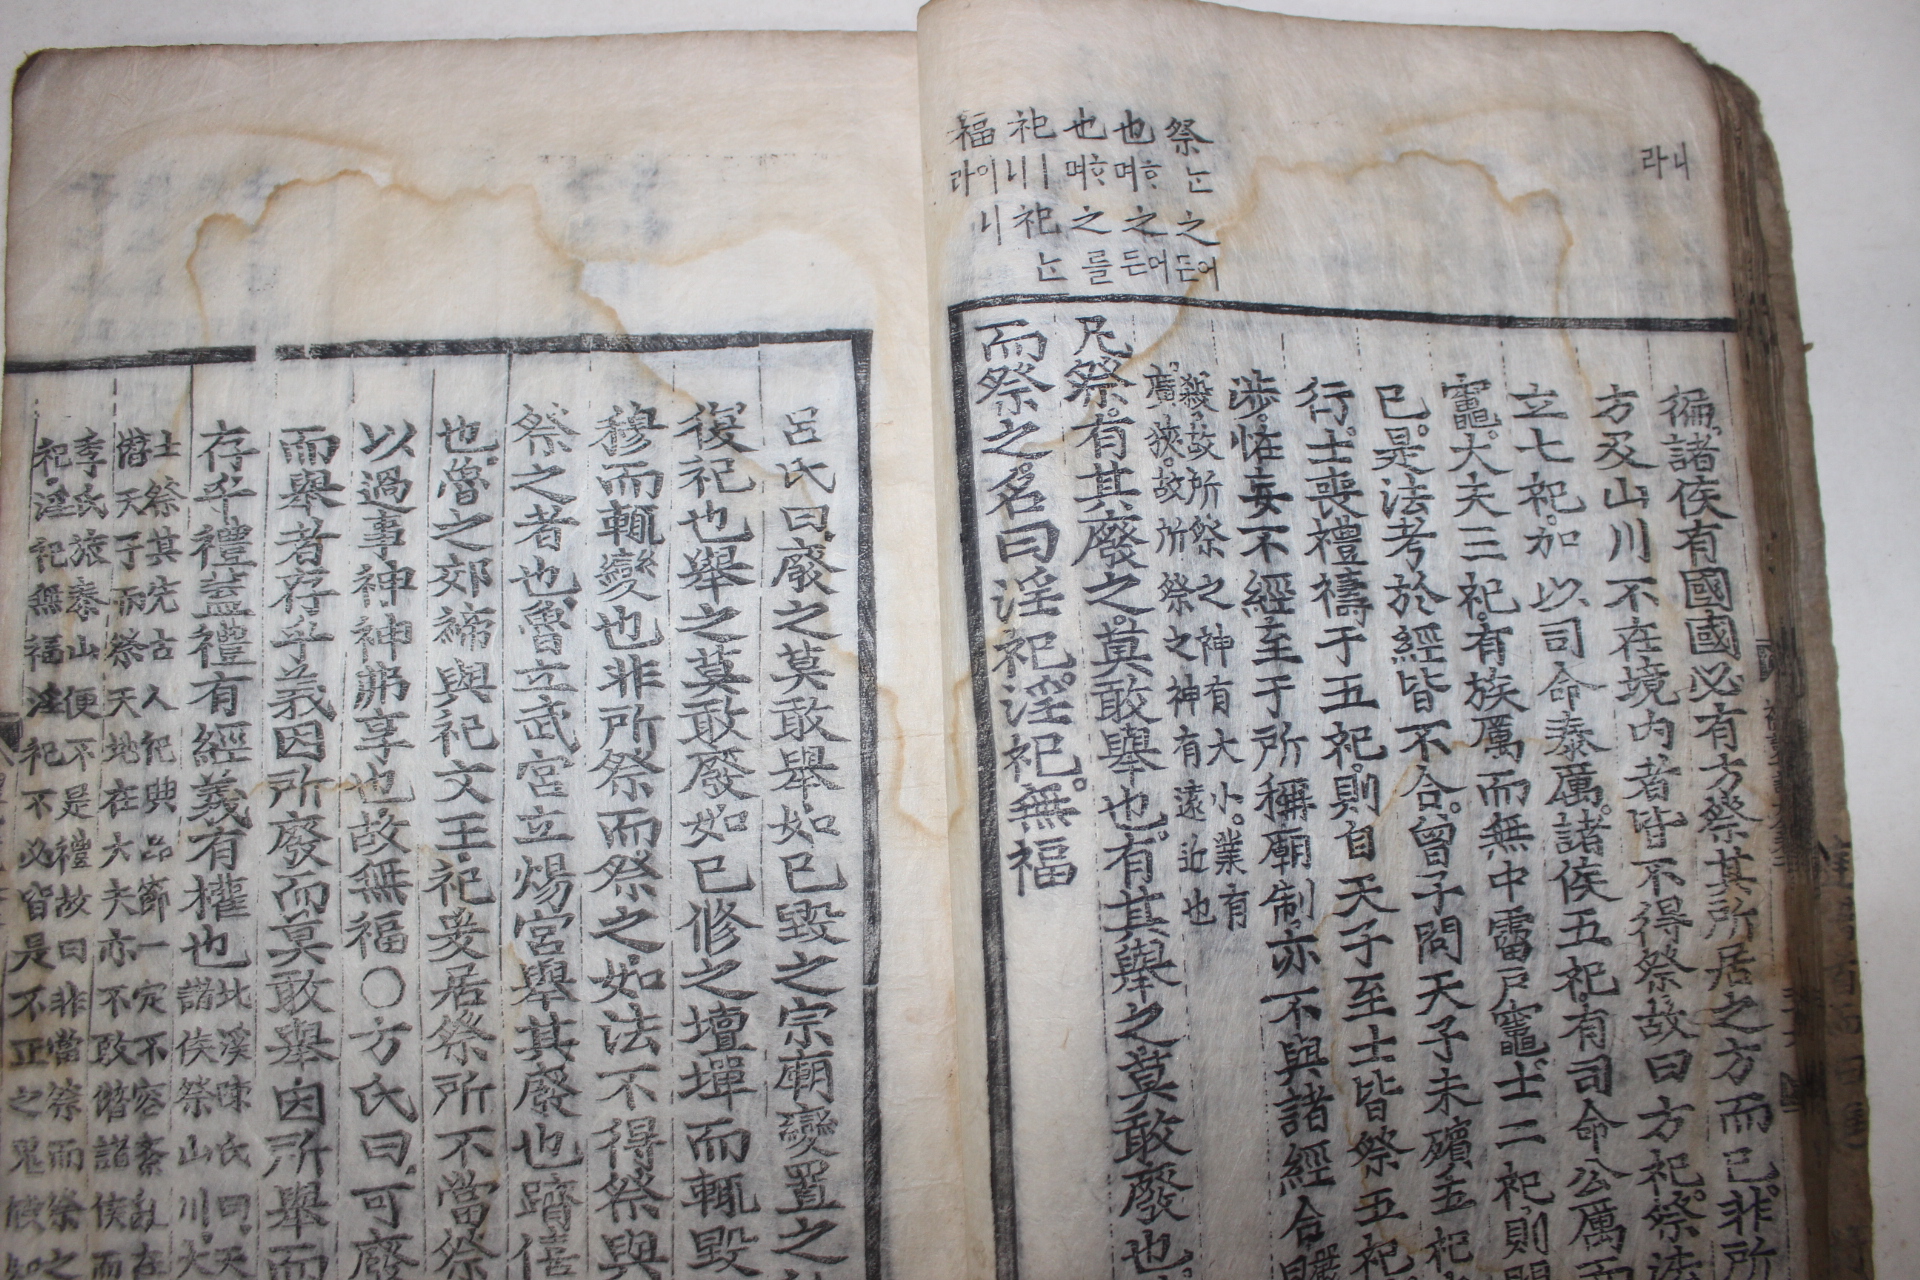 니라
祭는之든어
也ᄒᆞ며之든어
也ᄒᆞ며之를
祀ㅣ니祀는
福이니라
徧諸侯有國國必有方祭其所居之方而已非所
方及山川不在境內者皆不得祭故曰方祀祭法
立七祀加以司命泰厲諸侯五祀有司命公厲而
竈大夫三祀有族厲而無中霤戶竈士二祀則門
已是法考於經皆不合曾子問天子未殯五祀
行士喪禮禱于五祀則自天子至士皆祭五祀
涉怪妄不經至于所稱廟制亦不與諸經合
殺故所祭之神有大小業有
廣狹故所祭之神有遠近也
凡祭有其廢之莫敢擧也有其擧之莫敢廢也
而祭之名曰淫祀淫祀無福
呂氏曰廢之莫敢擧如已毀之宗廟變置之
復祀也擧之莫敢廢如已修之壇墠而輒毀
穆而輒變也非所祭而祭之如法不得祭與
祭之者也魯立武宮立煬宮擧其廢也躋僖
也魯之郊禘與祀文王祀爰居祭所不當祭
以過事神神弗享也故無福〇方氏曰可廢
而擧者存乎義因所廢而莫敢擧因所擧而
存乎禮盖禮有經義有權也
北溪陳氏曰天
諸侯祭山川大
士祭其先古人祀典品節一定不容紊亂在
僭天子而祭天地在大夫亦不敢僭諸侯而
季氏旅泰山便不是禮故曰非當祭而祭之
祀淫祀無福淫祀不必皆是不正之鬼